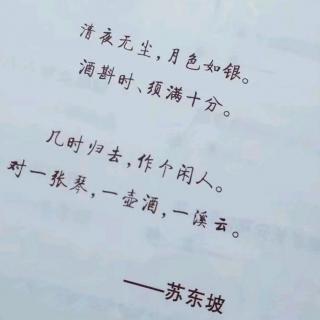 清夜无尘,月色如银。
酒斟时、须满十分。
几时归去,作个闲人。
对一张琴,一壶酒,一溪云。
——苏东坡